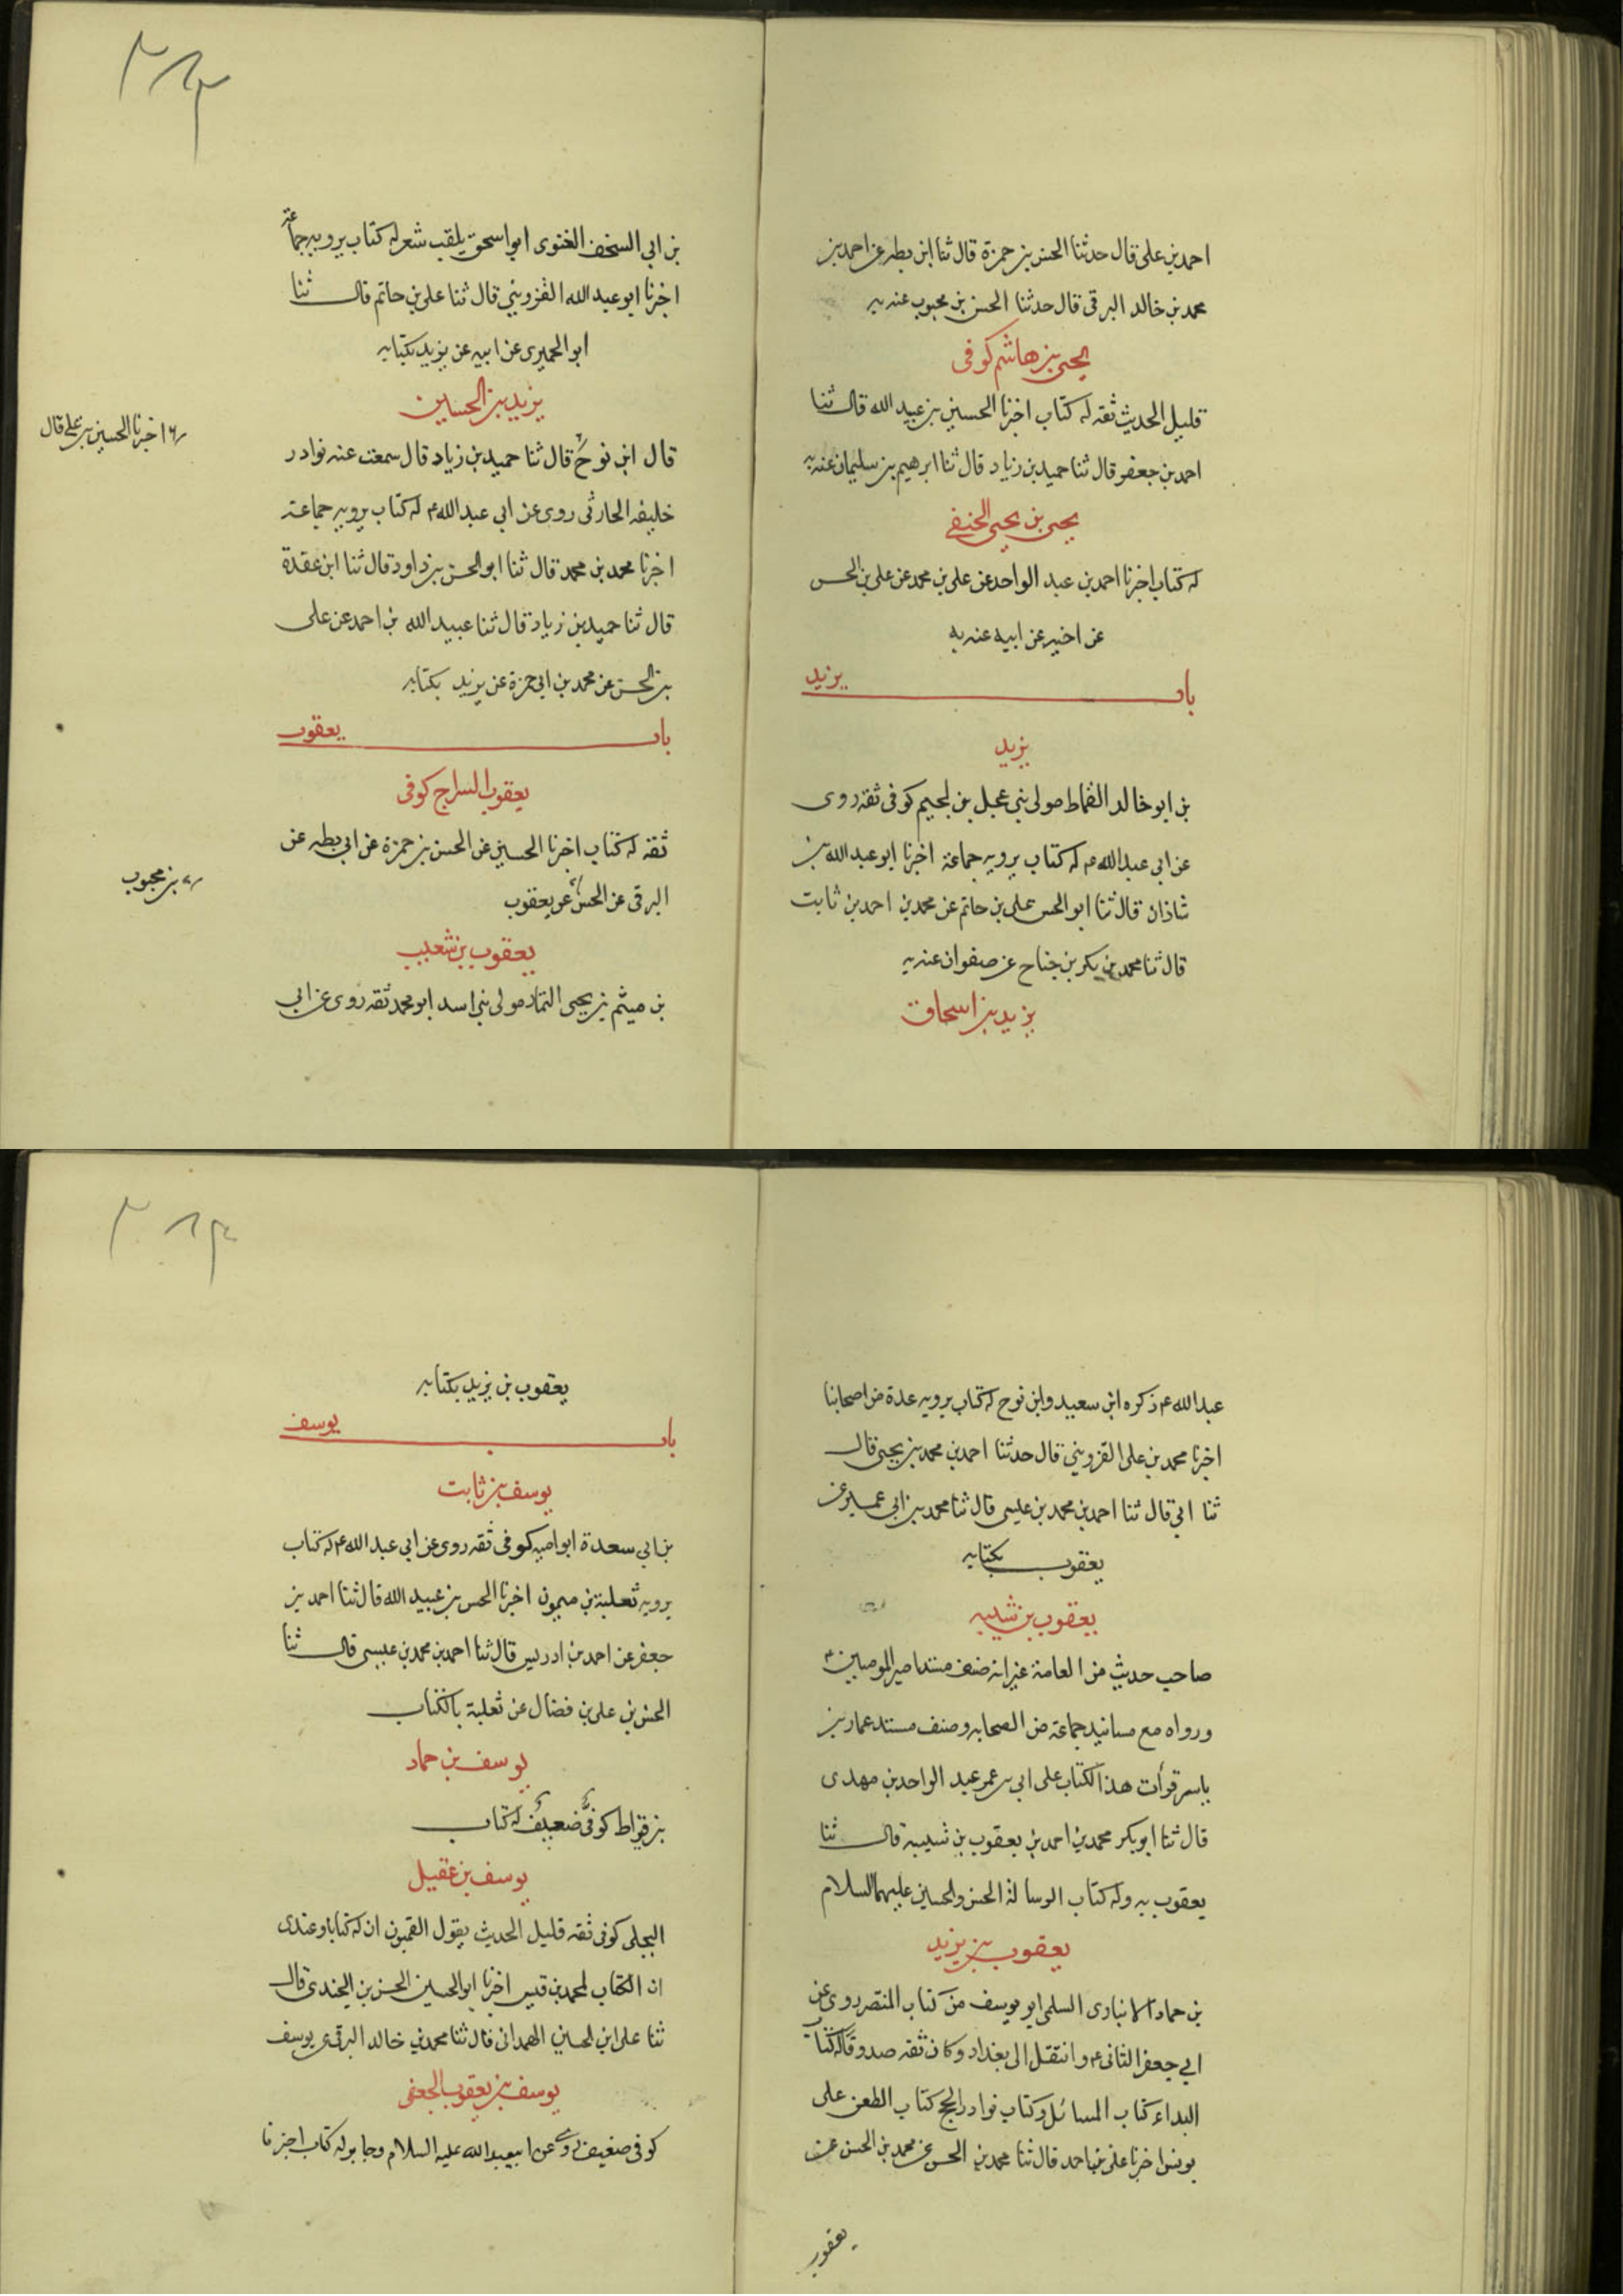 احمد بن على قال حدثنا الحسن بن حمزة قال ثنا ابن بطه عن احمد بن
محمد بن خالد البرقى قال حدثنا الحسن بن محبوب عنه به
يحيى بن هاشم كوفى
قليل الحديث ثقه له كتاب اخبرنا الحسين بن عبيد الله قال ثنا
احمد بن جعفر قال ثنا حميد بن زياد قال ثنا ابرهيم بن سليمان عنه به
يحيى بن يحيى الحنفى
له كتاب اخبرنا احمد بن عبد الواحد عن على بن محمد عن على بن الحسن
عن اخيه عن ابيه عنه به
باب يزيد
يزيد
بن ابو خالد القماط مولى بنى عجل بن لجيم كوفى ثقه روى
عن ابى عبد الله ع له كتاب يرويه جماعة اخبرنا ابو عبد الله بن
شاذان قال ثنا ابو الحسن على بن حاتم عن محمد بن احمد بن ثابت
قال ثنا محمد بن بكر بن جناح عن صفوان عنه به
يزيد بن اسحاق
بن ابى السخف الغنوى ابو اسحق يلقب شعر له كتاب يرويه جماعة
اخبرنا ابو عبد الله القزوينى قال ثنا على بن حاتم قال ثنا
ابو الحميرى عن ابيه عن يزيد بكتابه
يزيد بن الحساين
قال ابن نوح قال ثنا حميد بن زياد قال سمعت عنه نوادر
اخبرنا الحسين بن على قال
خليفه الحارثى روى عن ابى عبد الله ع له كتاب يرويه جماعة
اخبرنا محمد بن محمد قال ثنا ابو الحسن بن داود قال ثنا ابن عقدة
قال ثنا حميد بن زياد قال ثنا عبيد الله بن احمد عن على
بن الحسن عن محمد بن ابى حمزة عن يزيد بكتابه
باب يعقوب
يعقوب السراج كوفى
ثقه له كتاب اخبرنا الحسين عن الحسن بن حمزة عن ابى بطه عن
البرقى عن الحسن عن يعقوب
بن محبوب
يعقوب بن شعيب
بن ميثم بن يحيى التمار مولى بنى اسد ابو محمد ثقه روى عن ابى
عبد الله ع ذكره ابن سعيد وابن نوح له كتاب يرويه عدة من اصحابنا
اخبرنا محمد بن على القزوينى قال حدثنا احمد بن محمد بن يحيى قال
ثنا ابى قال ثنا احمد بن محمد بن عيسى قال ثنا محمد بن ابى عمير عن
يعقوب بكتابه
يعقوب بن شيبه
صاحب حديث من العامة غير انه صنف مسند امير المومنين ع
ورواه مع مسانيد جماعة من الصحابه وصنف مسند عمار بن
ياسر قرأت هذا الكتاب على ابى عمر عبد الواحد بن مهدى
قال ثنا ابو بكر محمد بن احمد بن يعقوب بن شيبة قال ثنا
يعقوب به وله كتاب الرسالة الحسن والحسين عليهما السلام
يعقوب بن يزيد
بن حماد الانبارى السلمى ابو يوسف من كتاب المنتصر روى عن
ابى جعفر الثانى ع وانتقل الى بغداد وكان ثقه صدوقا له كتاب
البداء كتاب المسائل وكتاب نوادر الحج كتاب الطعن على
يونس اخبرنا على بن احمد قال ثنا محمد بن الحسن عن محمد بن الحسن عن
يعقوب
يعقوب بن يزيد بكتابه
باب يوسف
يوسف بن ثابت
بن ابى سعدة ابو اميه كوفى ثقه روى عن ابى عبد الله ع له كتاب
يرويه ثعلبة بن ميمون اخبرنا الحسن بن عبيد الله قال ثنا احمد بن
جعفر عن احمد بن ادريس قال ثنا احمد بن محمد بن عيسى قال ثنا
الحسن بن على بن فضال عن ثعلبة بالكتاب
يوسف بن حماد
بن قيراط كوفى ضعيف له كتاب
يوسف بن عقيل
البجلى كوفى ثقه قليل الحديث يقول القميون ان له كتابا وعندى
ان الكتاب لمحمد بن قيس اخبرنا ابو الحسين الحسن بن الجندى قال
ثنا على ابن الحسين الهمدانى قال ثنا محمد بن خالد البرقى عن يوسف
يوسف بن يعقوب الجعفى
كوفى ضعيف روى عن ابى عبد الله عليه السلام وجابر له كتاب اخبرنا